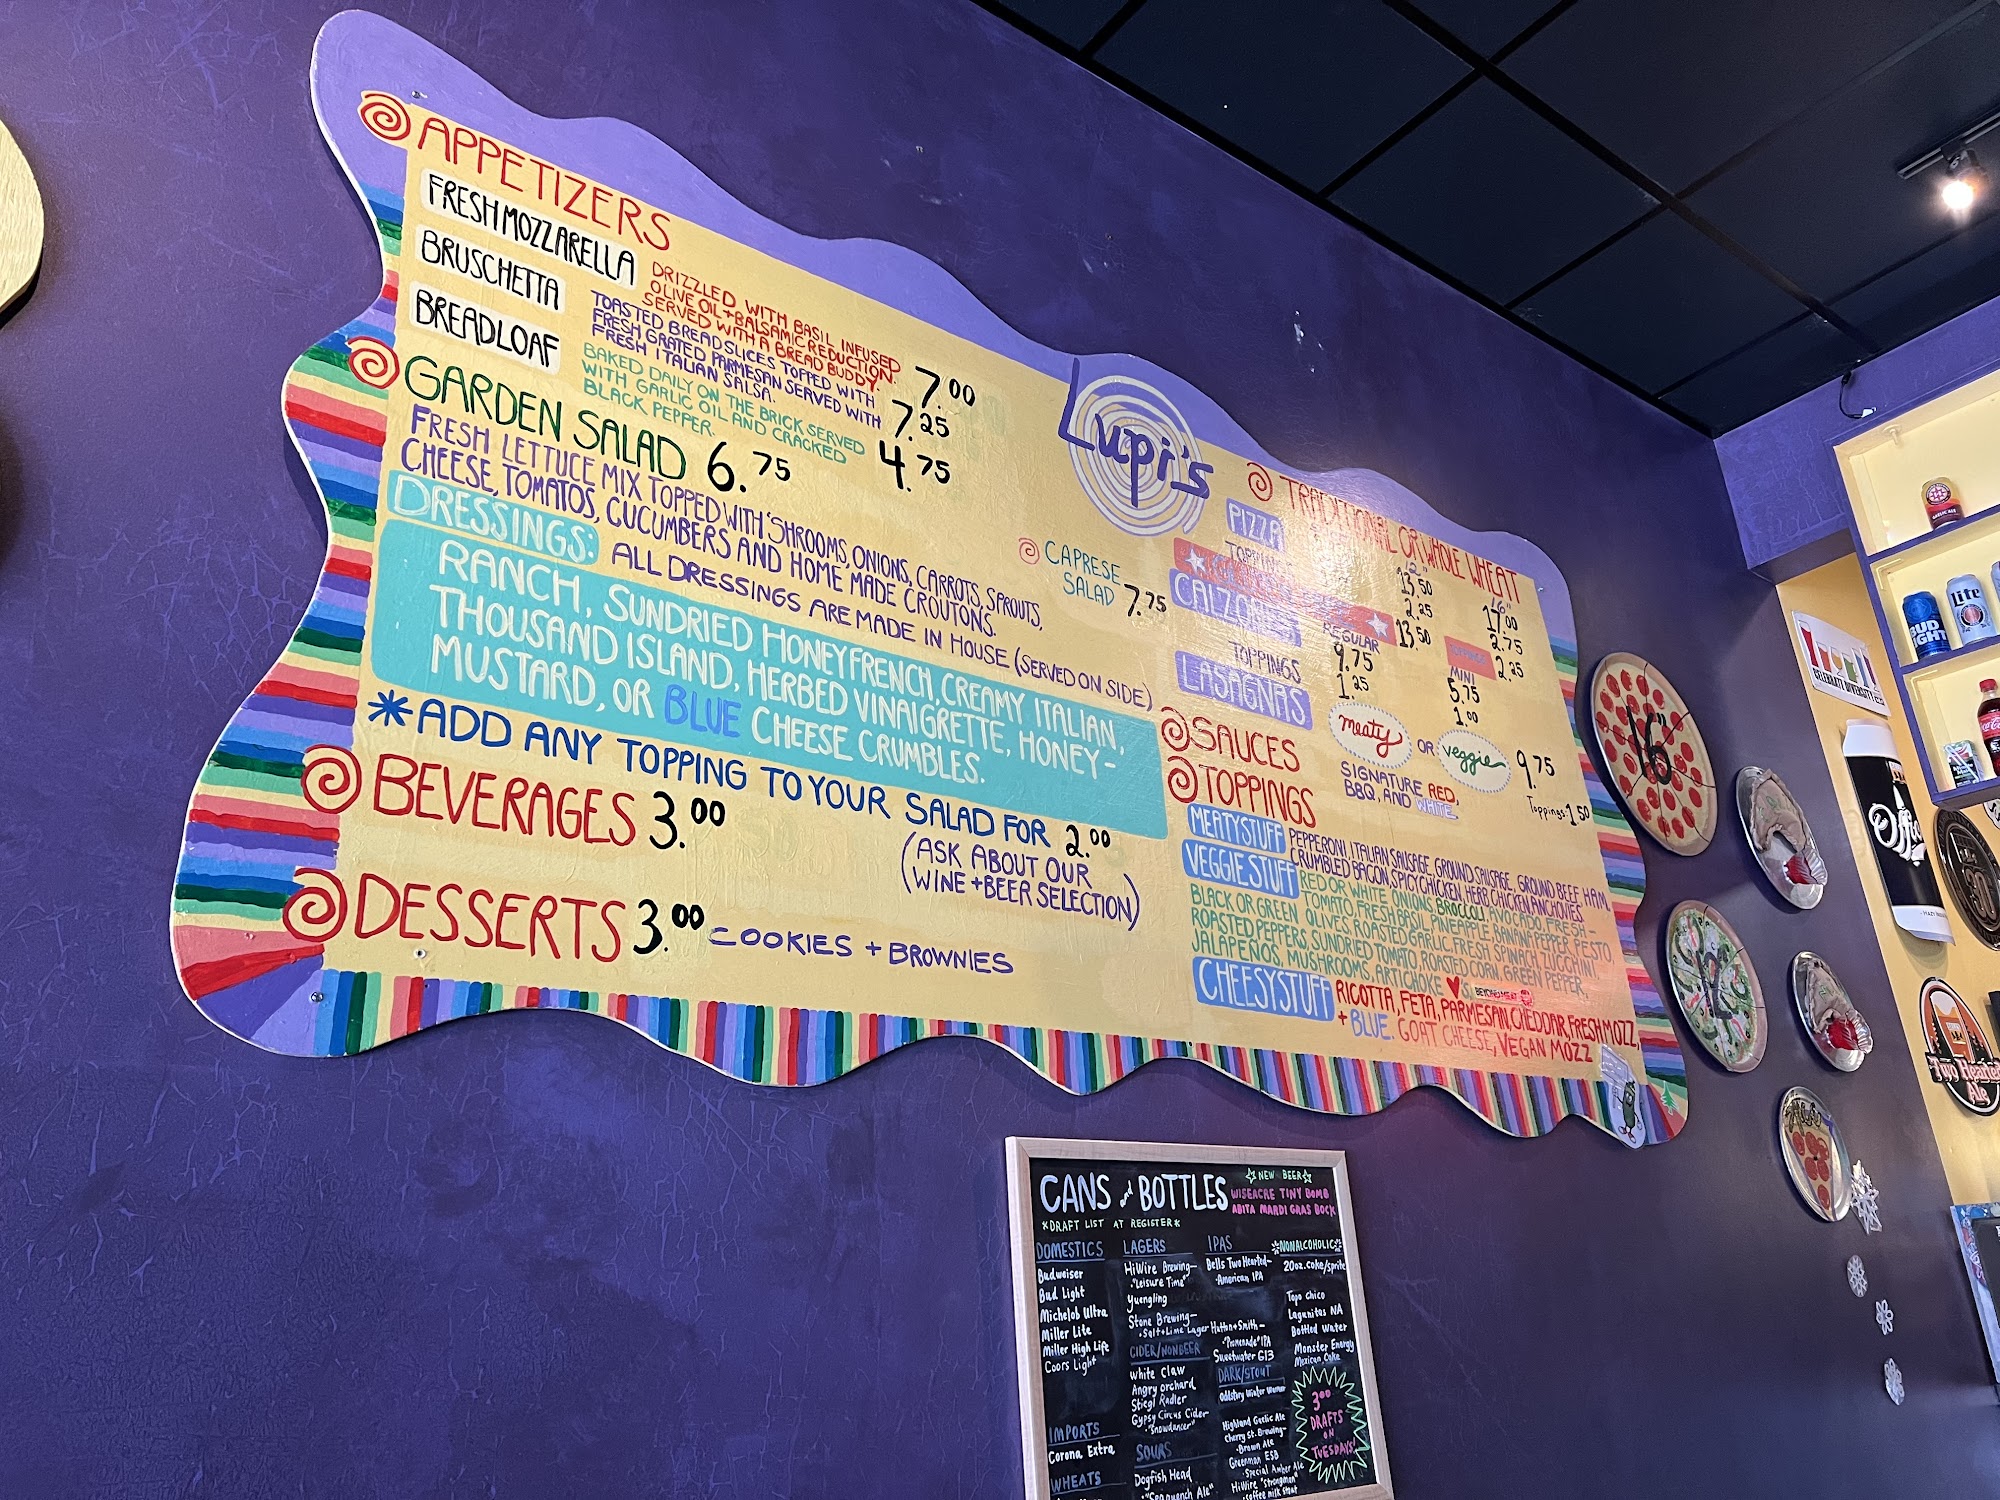 APPETIZERS
FRESH MOZZARELLA
DRIZZLED WITH BASIL INFUSED
OLIVE OIL + BALSAMIC REDUCTION.
SERVED WITH A BREAD BUDDY.
7.00
BRUSCHETTA
TOASTED BREAD SLICES TOPPED WITH
FRESH GRATED PARMESAN SERVED WITH
FRESH ITALIAN SALSA.
7.25
BREADLOAF
BAKED DAILY ON THE BRICK SERVED
WITH GARLIC OIL AND CRACKED
BLACK PEPPER.
4.75
GARDEN SALAD 6.75
FRESH LETTUCE MIX TOPPED WITH 'SHROOMS, ONIONS, CARROTS, SPROUTS,
CHEESE, TOMATOS, CUCUMBERS AND HOME MADE CROUTONS.
DRESSINGS: ALL DRESSINGS ARE MADE IN HOUSE (SERVED ON SIDE)
RANCH, SUNDRIED HONEYFRENCH, CREAMY ITALIAN,
THOUSAND ISLAND, HERBED VINAIGRETTE, HONEY-
MUSTARD, OR BLUE CHEESE CRUMBLES.
*ADD ANY TOPPING TO YOUR SALAD FOR 2.00
BEVERAGES 3.00
(ASK ABOUT OUR
WINE + BEER SELECTION)
DESSERTS 3.00 COOKIES + BROWNIES
CAPRESE
SALAD 7.75
Lupi's
TRADITIONAL OR WHOLE WHEAT
PIZZA
12" 16"
13.50 17.00
TOPPINGS 2.25 2.75
13.50 TOPPINGS 2.25
CALZONES
REGULAR MINI
9.75 5.75
TOPPINGS 1.25 1.00
LASAGNAS
meaty OR veggie 9.75
Toppings 1.50
SAUCES
SIGNATURE RED,
BBQ, AND WHITE.
TOPPINGS
MEATYSTUFF PEPPERONI, ITALIAN SAUSAGE, GROUND SAUSAGE, GROUND BEEF, HAM,
CRUMBLED BACON, SPICY CHICKEN, HERB CHICKEN, ANCHOVIES.
VEGGIE STUFF RED OR WHITE ONIONS, BROCCOLI, AVOCADO, FRESH-
TOMATO, FRESH BASIL, PINEAPPLE, BANANA PEPPER, PESTO,
BLACK OR GREEN OLIVES, ROASTED GARLIC, FRESH SPINACH, ZUCCHINI,
ROASTED PEPPERS, SUNDRIED TOMATO, ROASTED CORN, GREEN PEPPER,
JALAPEÑOS, MUSHROOMS, ARTICHOKE ♥'S, BEYOND MEAT
CHEESYSTUFF RICOTTA, FETA, PARMESAN, CHEDDAR, FRESH MOZZ,
+ BLUE. GOAT CHEESE, VEGAN MOZZ
CANS and BOTTLES
*DRAFT LIST AT REGISTER*
☆NEW BEER☆
WISEACRE TINY BOMB
ABITA MARDI GRAS BOCK
DOMESTICS
Budweiser
Bud Light
Michelob Ultra
Miller Lite
Miller High Life
Coors Light
IMPORTS
Corona Extra
WHEATS
LAGERS
HiWire Brewing-
"Leisure Time"
Yuengling
Stone Brewing-
Salt+Lime Lager
CIDER/NONBEER
White Claw
Angry orchard
Stiegl Radler
Gypsy Circus Cider-
"Snowdancer"
SOURS
Dogfish Head
"Seaquench Ale"
IPAS
Bells Two Hearted-
American IPA
Hutton+Smith-
"Promenade" IPA
Sweetwater G13
DARK/STOUT
Oddstory Winter Warmer
Highland Gaelic Ale
Cherry St. Brewing-
Brown Ale
Greenman ESB
Special Amber Ale
HiWire "Strongman"
coffee milk stout
*NONALCOHOLIC*
20oz. coke/sprite
Topo chico
Lagunitas NA
Bottled water
Monster Energy
Mexican Coke
3.00
DRAFTS
ON
TUESDAYS!
16"
12
BUD
LIGHT
Lite
CELEBRATE DIVERSITY
Two Hearted
Ale